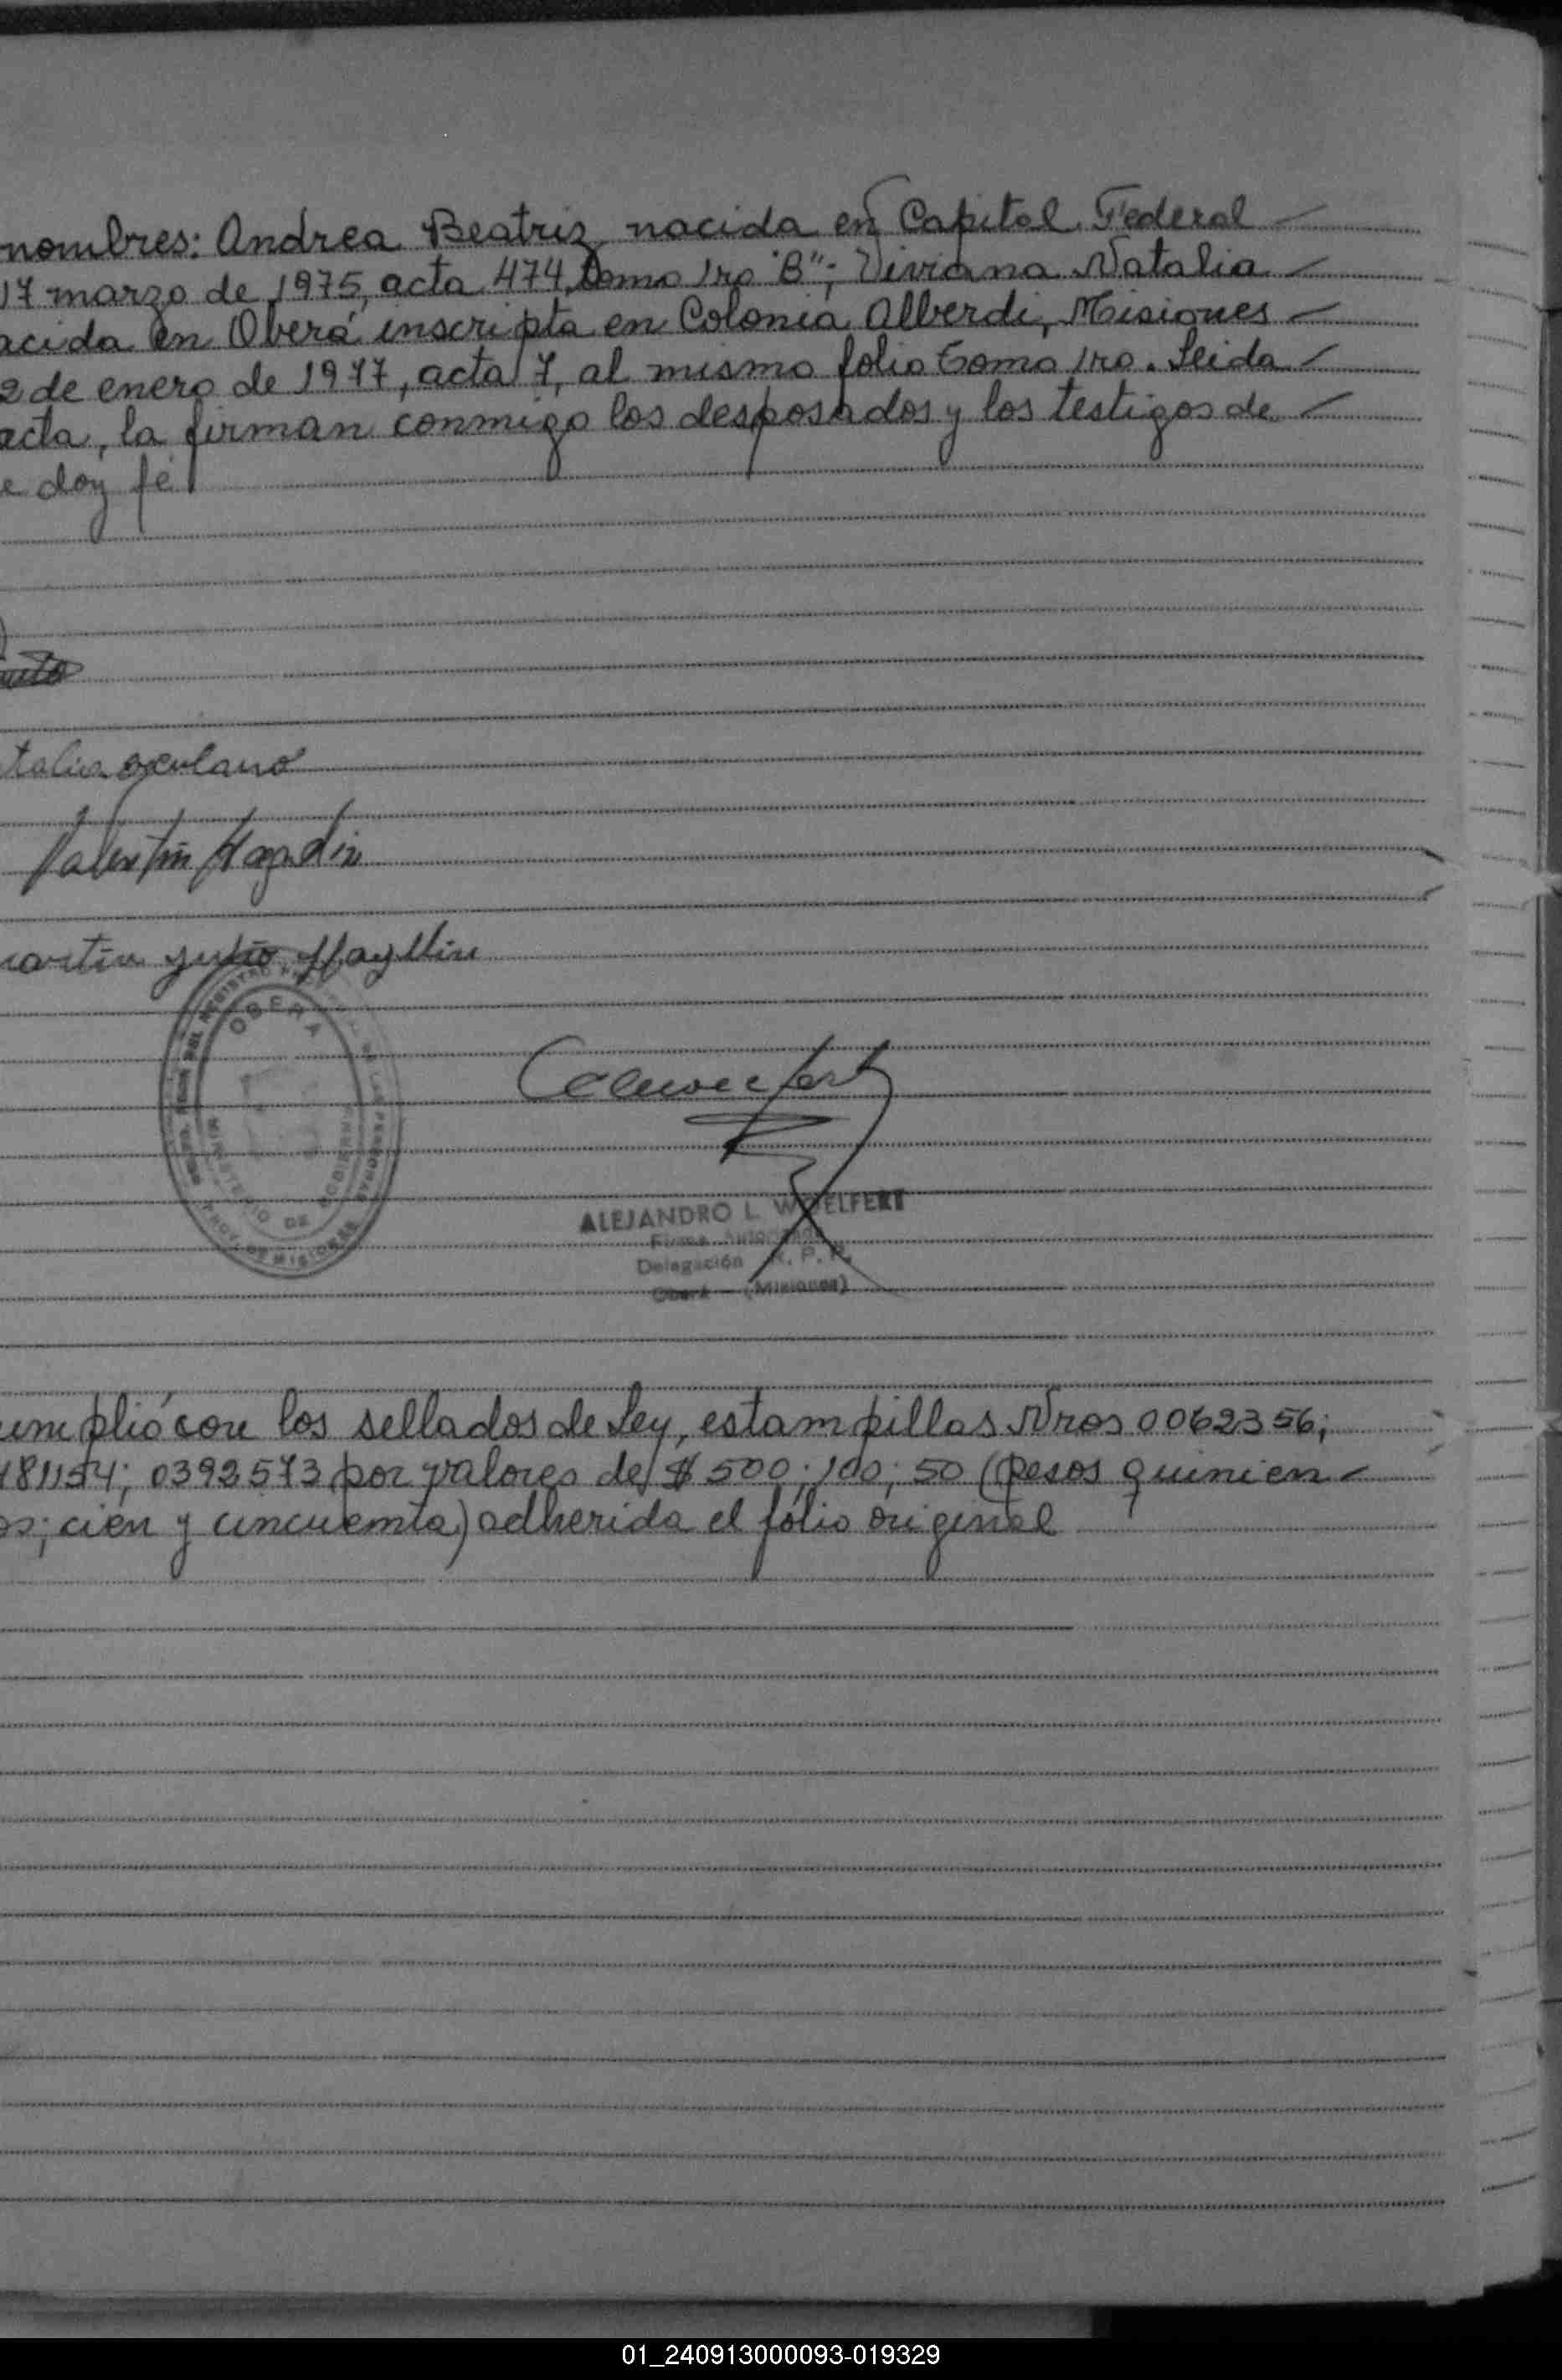 nombres: Andrea Beatriz nacida en Capital Federal
17 marzo de 1975, acta 474, tomo 1ro "B"; Viviana Natalia
acida en Oberá inscripta en Colonia Alberdi, Misiones
2 de enero de 1977, acta 7, al mismo folio tomo 1ro. Leida
acta, la firman conmigo los desposados y los testigos de
e doy fé
Valentin
OBERA
MINISTERIO DE GOBIERNO
PROV. DE MISIONES
ALEJANDRO L. WOELFERT
Firma Autorizada
Delegación R. P. P.
Oberá (Misiones)
umplió con los sellados de Ley, estampillas Nros 0062356;
0392573 por valores de $ 500; 100; 50 (pesos quinien
os; cien y cincuenta) adherida el folio original
01_240913000093-019329